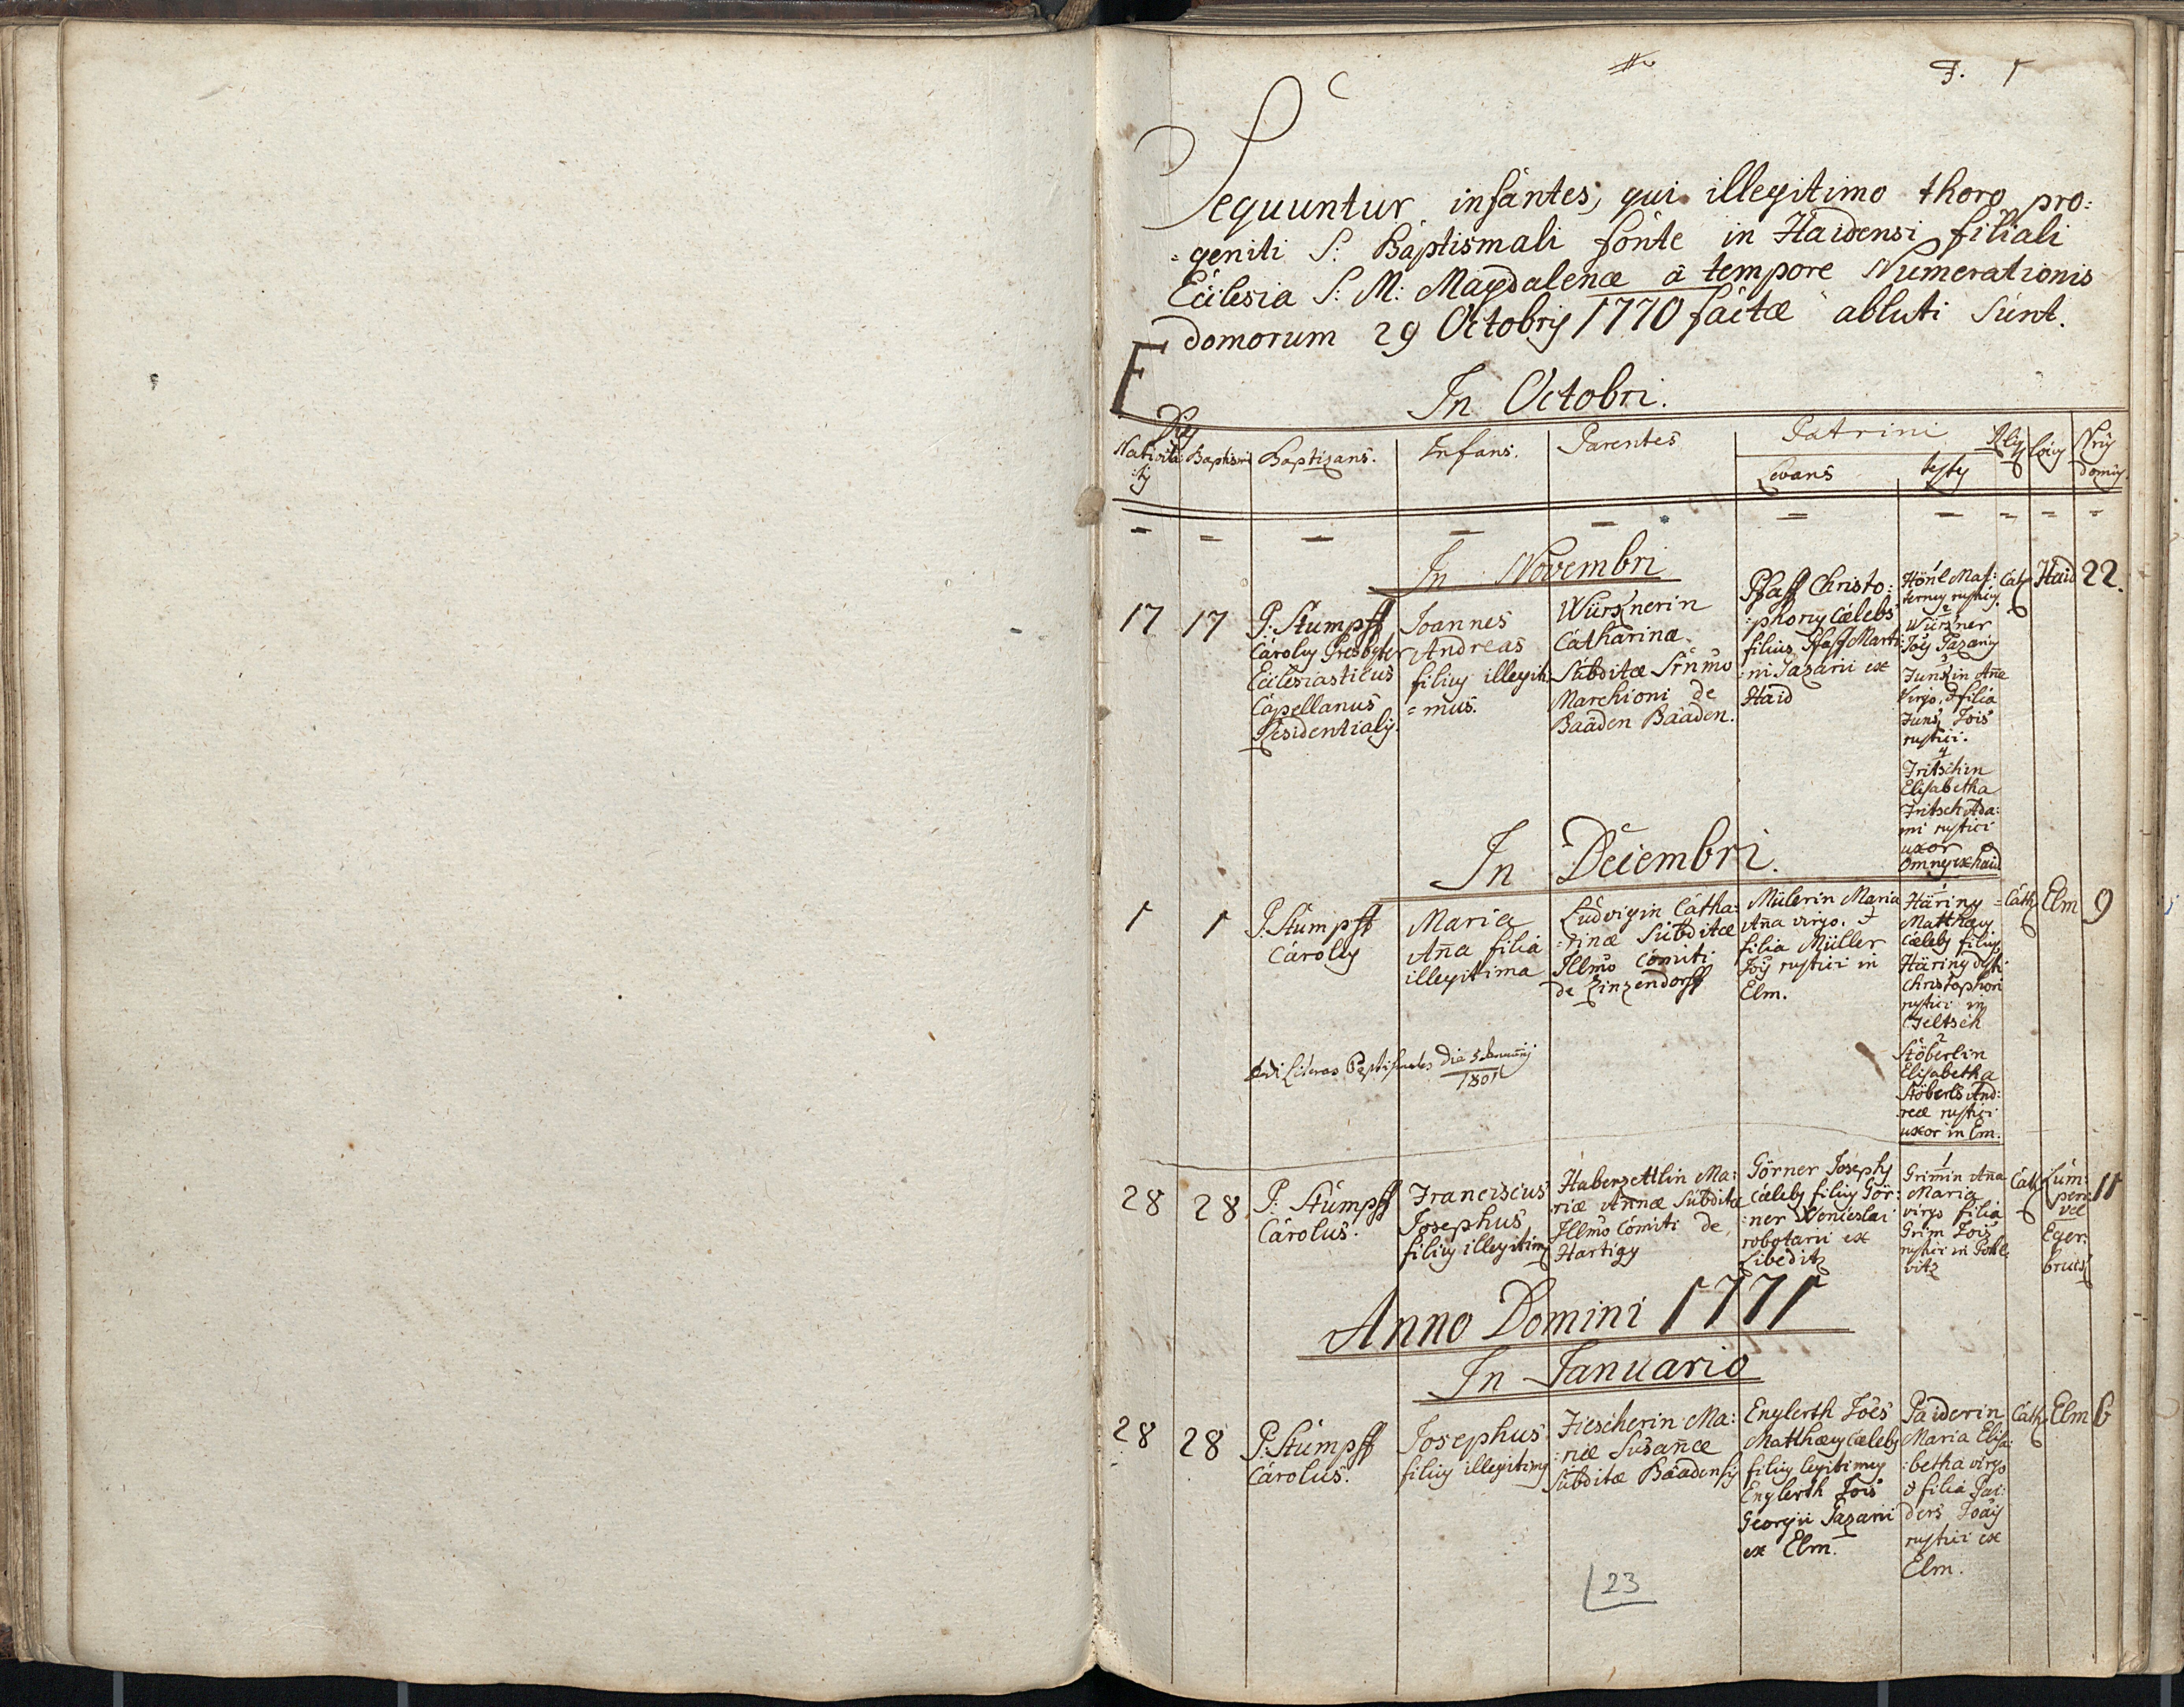 F. 1
Sequuntur infantes, qui illegitimo thoro pro:
=geniti S: Baptismali fonte in Haidensi filiali
Ecclesia S: M: Magdalenæ à tempore Numerationis
domorum 29 Octobris 1770 factæ abluti sunt.
F
In Octobri.
Dies
Nativita: Baptismi Baptizans. Infans. Parentes Patrini Relig Locus Nrus
:tis Levans testes domus
In Novembri
17 17
P: Stumpff
Carolus Presbyter
Ecclesiasticus
Capellanus
Residentialis.
Joannes
Andreas
filius illegiti
=mus.
Würznerin
Catharina
Subditæ Srñmo
Marchioni de
Baaden Baaden.
Pfaff Christo:
:phorus Cælebs
filius Pfaff Marti
:ni Pazarii ex
Haid
1
Hönl Mat:
ternus rusticus
2
Würzner
Jois Pazarius
3
Junzin Aña
Virgo, & filia
Junz Jois
rustici.
4
Fritschin
Elisabetha
Fritsch Ada:
mi rustici
uxor
Omnes ex Haid
Cath Haid 22.
In Decembri.
1 1
P: Stumpff
Carolus
Maria
Aña filia
illegitima
Ludvigin Catha:
:rinæ Subditæ
Illmo Comiti
de Zinzendorff
Mülerin Maria
Aña virgo. &
filia Müller
Jois rustici in
Elm.
1
Häring
Matthæus
Cælebs filius
Häring
Christophori
rustici in
Geltsch
2
Stöberlin
Elisabetha
Stöberls And:
reæ rustici
uxor in Em.
Cath Elm 9
dedi Literas Baptismales die 5 Januarij
1801
28 28
P: Stumpff
Carolus.
Franciscus
Josephus
filius illegitim9
Haberzettlin Ma:
riæ Añnæ Subditæ
Illmo Comiti de
Hartigg
Görner Josephs
Cælebs filius Gör:
:ner Wenceslai
robotarii ex
Libeditz
1
Grimin Aña
Maria
virgo filia
Grim Jois
rustici in
vitz
Cath Lum:
pen
vel
Eger:
bruck
11
Anno Domini 1771
In Januario
28 28
P: Stumpff
Carolus.
Josephus
filius illegitim9
Fiescherin Ma:
:riæ Susañæ
Subditæ Baadensis
Englerth Joes
Matthæus Cælebs
filius legitimus
Englerth Jois
Georgii Pazarii
ex Elm.
Paiderin
Maria Elisa:
:betha virgo
& filia Pai:
ders
rustici ex
Elm.
Cath Elm 6
23